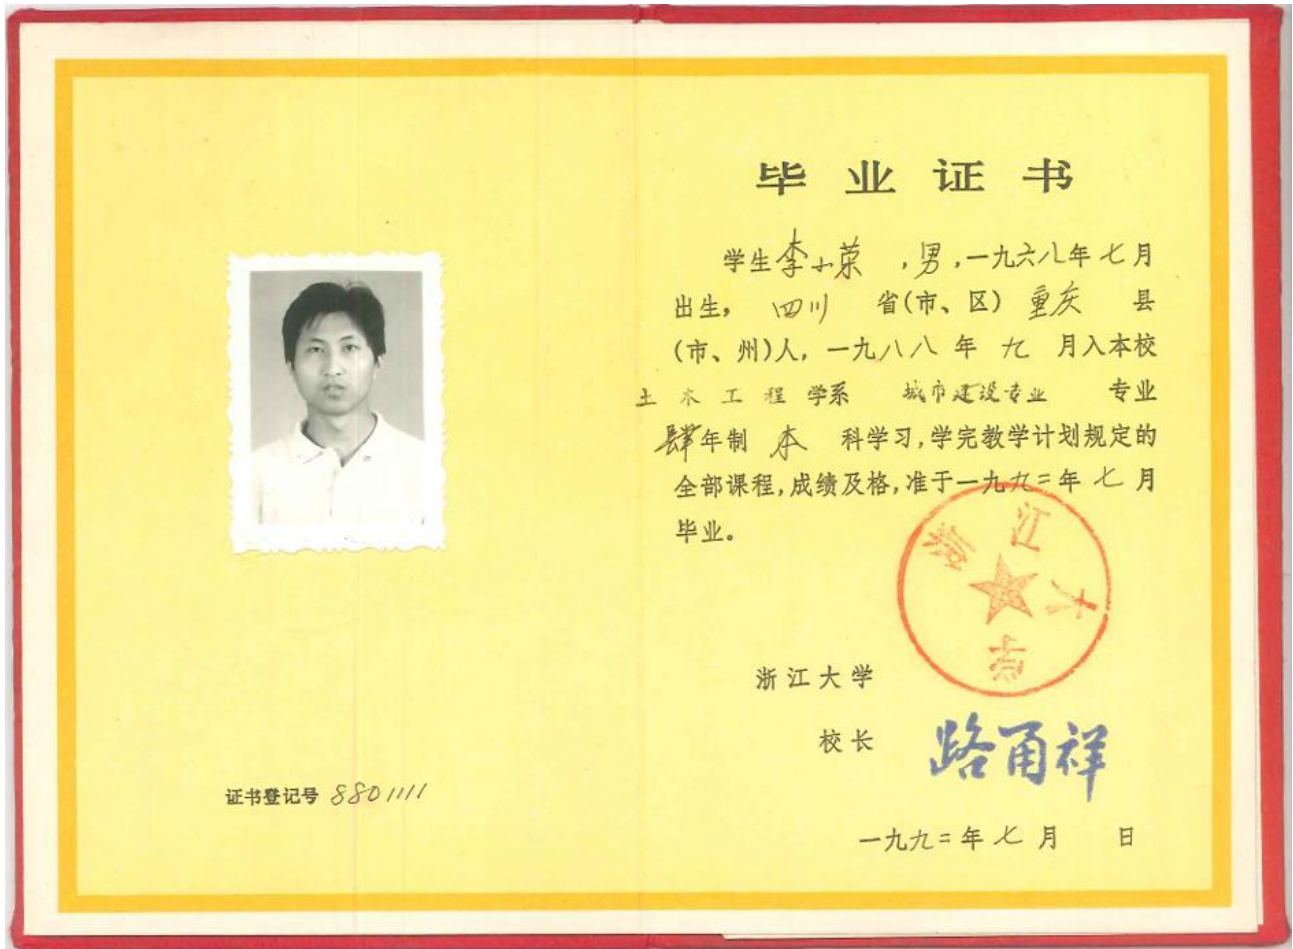 毕业证书
学生李小荣，男，一九六八年七月
出生，四川省(市、区)重庆县
(市、州)人，一九八八年九月入本校
土木工程学系 城市建设专业 专业
肆年制本科学习，学完教学计划规定的
全部课程，成绩及格，准于一九九二年七月
毕业。
浙江大学
浙江大学
校长 路甬祥
证书登记号 8801111
一九九二年七月 日